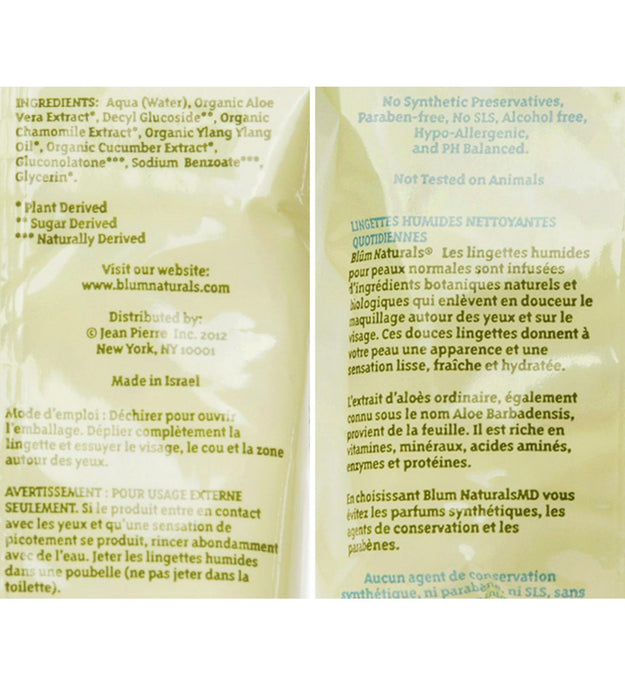 INGREDIENTS: Aqua (Water), Organic Aloe
Vera Extract*, Decyl Glucoside**, Organic
Chamomile Extract*, Organic Ylang Ylang
Oil*, Organic Cucumber Extract*,
Gluconolatone***, Sodium Benzoate***,
Glycerin*.
* Plant Derived
** Sugar Derived
*** Naturally Derived
Visit our website:
www.blumnaturals.com
Distributed by:
© Jean Pierre Inc. 2012
New York, NY 10001
Made in Israel
Mode d'emploi : Déchirer pour ouvrir
l'emballage. Déplier complètement la
lingette et essuyer le visage, le cou et la zone
autour des yeux.
AVERTISSEMENT : POUR USAGE EXTERNE
SEULEMENT. Si le produit entre en contact
avec les yeux et qu'une sensation de
picotement se produit, rincer abondamment
avec de l'eau. Jeter les lingettes humides
dans une poubelle (ne pas jeter dans la
toilette).
No Synthetic Preservatives,
Paraben-free, No SLS, Alcohol free,
Hypo-Allergenic,
and PH Balanced.
Not Tested on Animals
LINGETTES HUMIDES NETTOYANTES
QUOTIDIENNES
Blüm Naturals® Les lingettes humides
pour peaux normales sont infusées
d'ingrédients botaniques naturels et
biologiques qui enlèvent en douceur le
maquillage autour des yeux et sur le
visage. Ces douces lingettes donnent à
votre peau une apparence et une
sensation lisse, fraîche et hydratée.
L'extrait d'aloès ordinaire, également
connu sous le nom Aloe Barbadensis,
provient de la feuille. Il est riche en
vitamines, minéraux, acides aminés,
enzymes et protéines.
En choisissant Blum NaturalsMD vous
évitez les parfums synthétiques, les
agents de conservation et les
parabènes.
Aucun agent de conservation
synthétique, ni ni SLS, sans